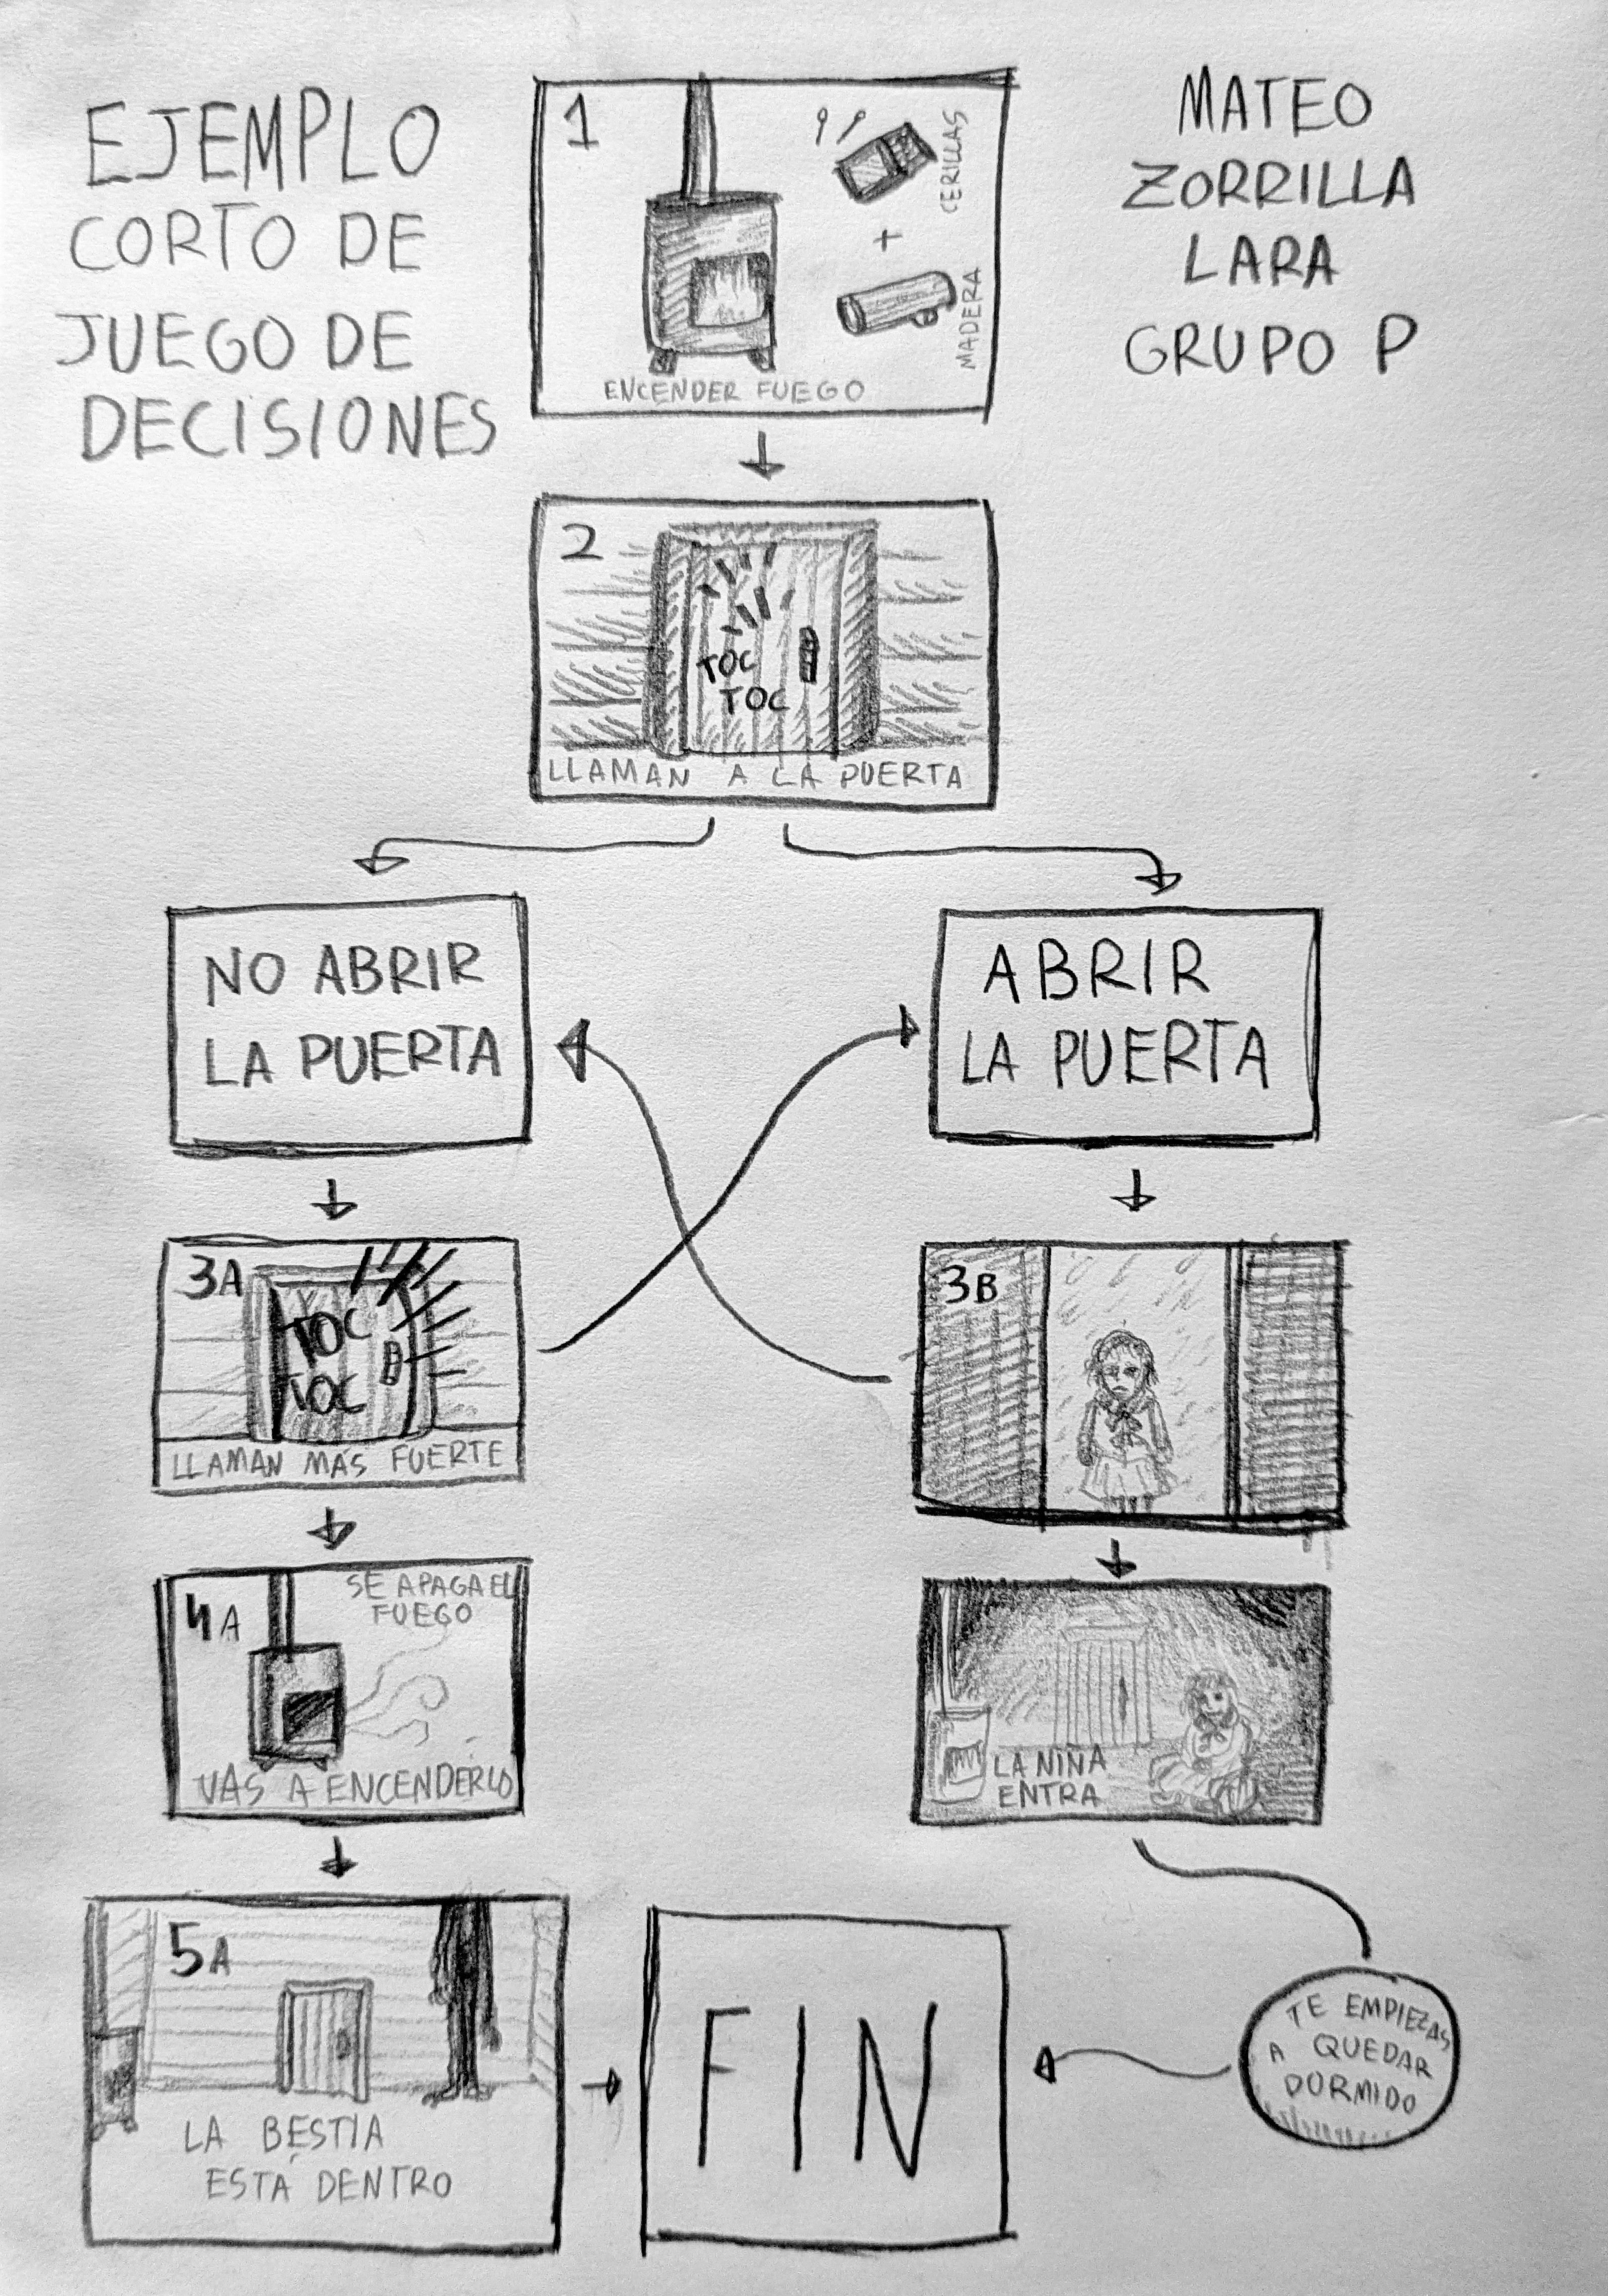 EJEMPLO
CORTO DE
JUEGO DE
DECISIONES
MATEO
ZORRILLA
LARA
GRUPO P
1
CERILLAS
+
MADERA
ENCENDER FUEGO
2
TOC
TOC
LLAMAN A LA PUERTA
NO ABRIR
LA PUERTA
ABRIR
LA PUERTA
3A
TOC
TOC
LLAMAN MÁS FUERTE
3B
4A
SE APAGA EL
FUEGO
VAS A ENCENDERLO
LA NIÑA
ENTRA
5A
LA BESTIA
ESTÁ DENTRO
FIN
TE EMPIEZAS
A QUEDAR
DORMIDO